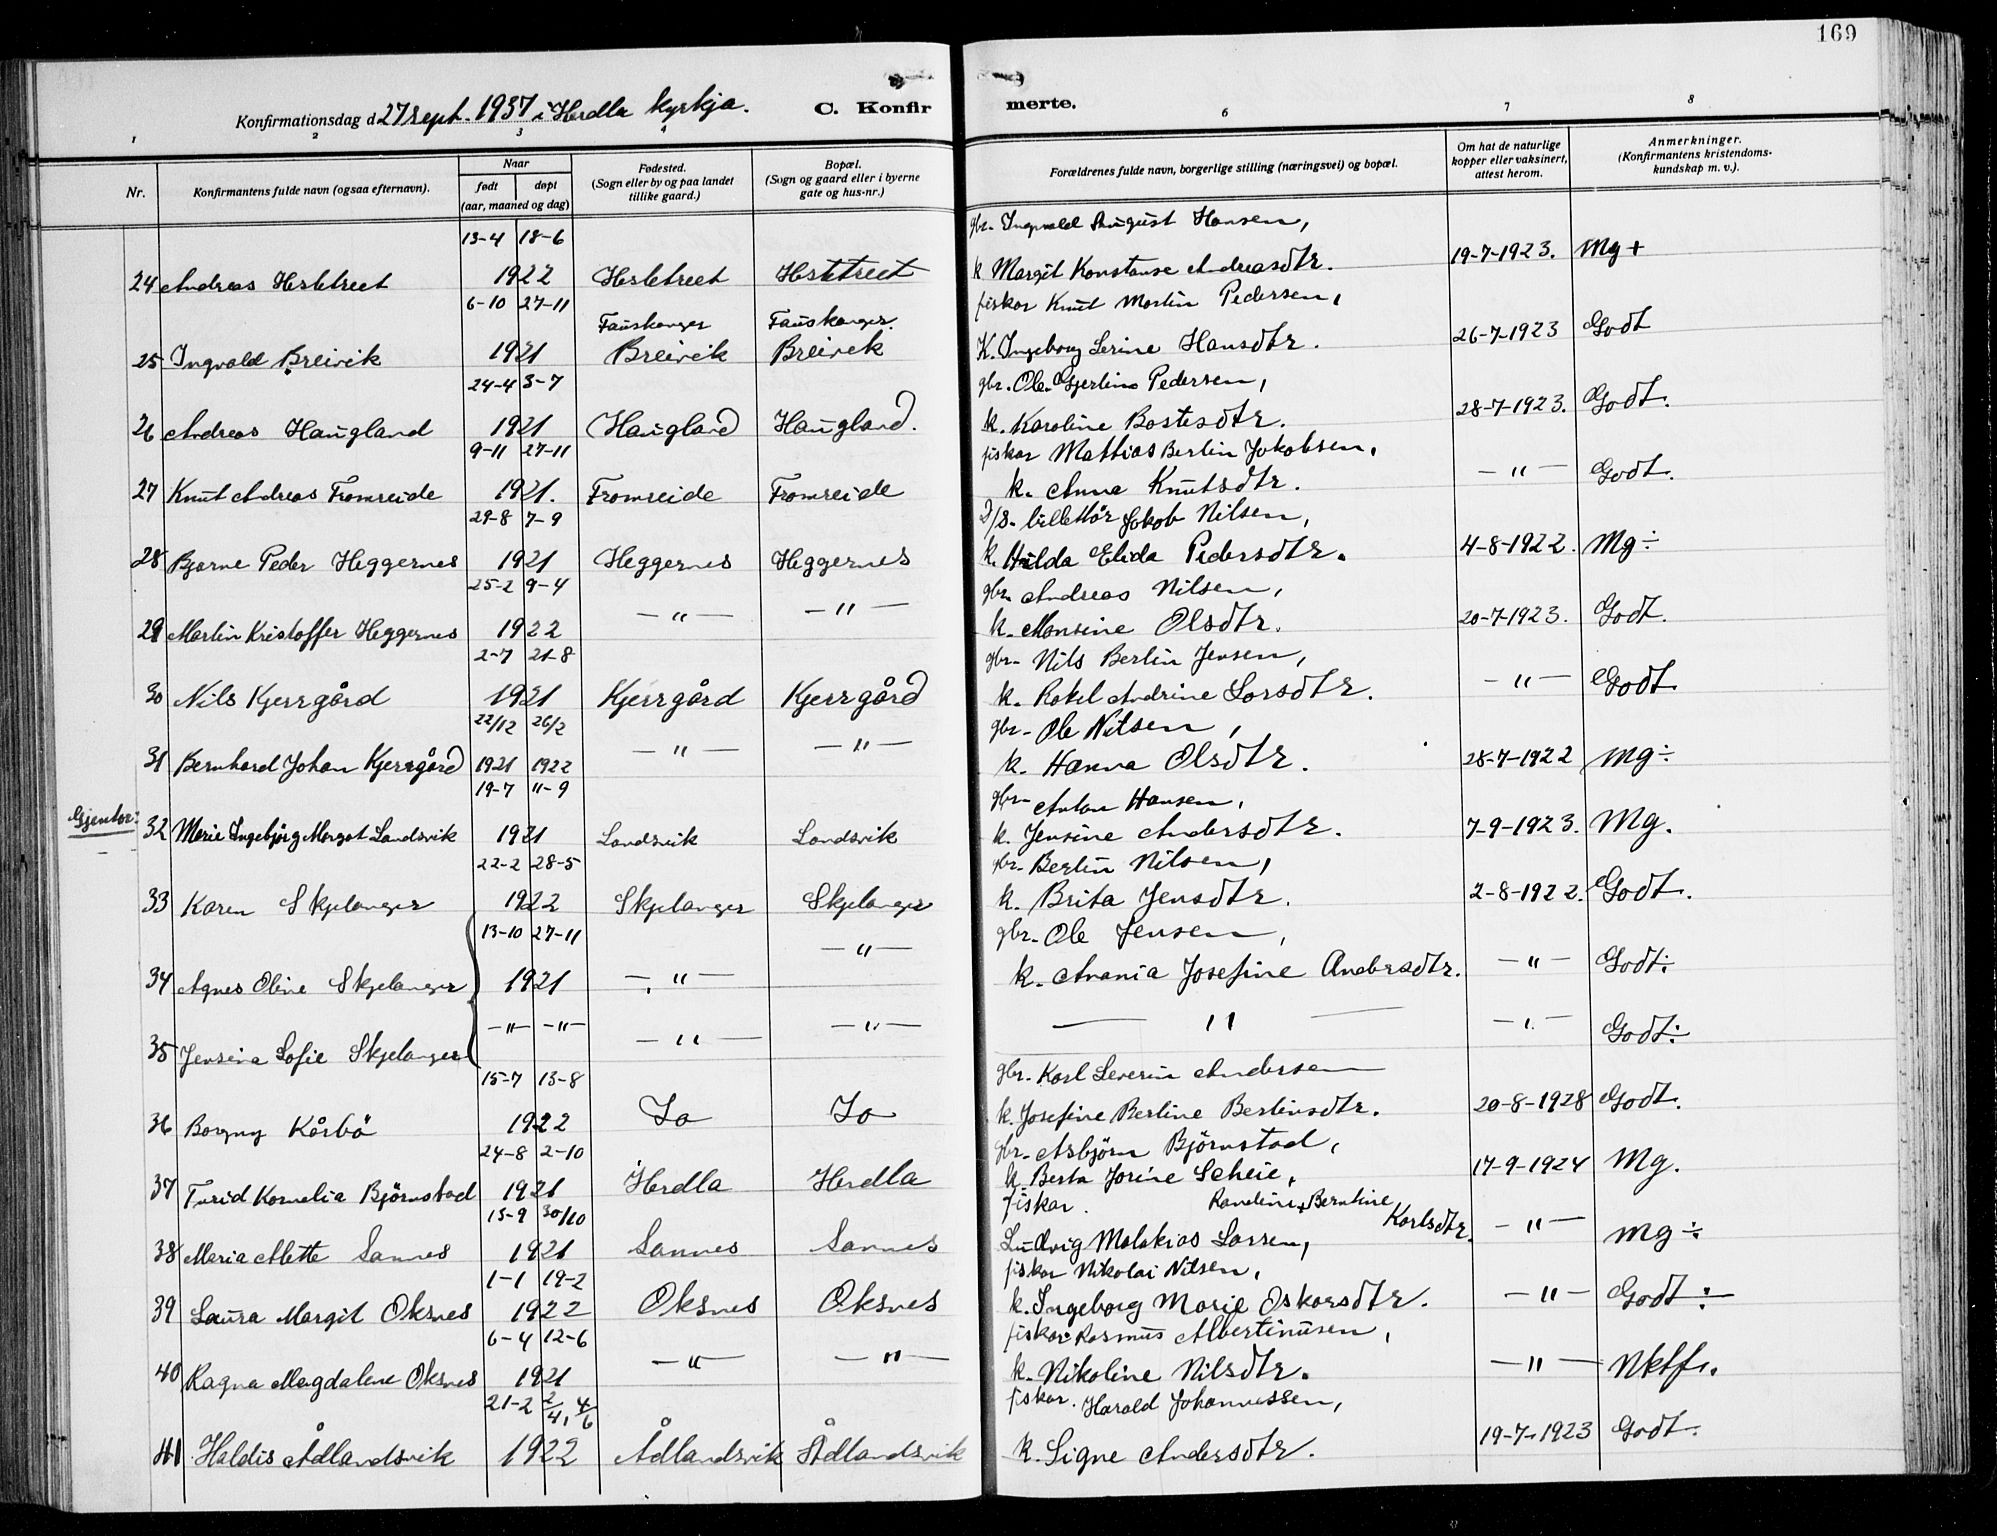 169
Konfirmationsdag d 27 sept. 1937 i Herdla kyrkja. C. Konfir merte.
1 2 3 4 6 7 8
Nr. Konfirmantens fulde navn (ogsaa efternavn). Naar født døpt (aar, maaned og dag) Fødested. (Sogn eller by og paa landet tillike gaard.) Bopæl. (Sogn og gaard eller i byerne gate og hus-nr.) Forældrenes fulde navn, borgerlige stilling (næringsvei) og bopæl. Om hat de naturlige kopper eller vaksinert, attest herom. Anmerkninger. (Konfirmantens kristendoms- kundskap m. v.).
13-4 18-6 gbr. Ingvald August Hansen,
24 Andreas Hestetreet 1922 Hestetreet Hestetreet k. Margit Konstanse Andreasdtr. 19-7-1923. Mg+
6-10 27-11 Fauskanger Fauskanger. fiskar Knut Martin Pedersen,
25 Ingvald Breivik 1921 Breivik Breivik K. Ingeborg Serine Hansdtr. 26-7-1923 Godt
24-4 3-7 gbr. Ole Gjertine Pedersen,
26 Andreas Haugland 1921 Haugland Haugland. k. Karoline Bastesdtr. 28-7-1923. Godt.
9-11 27-11 fiskar Mattias Berlin Jakobsen,
27 Knut Andreas Fromreide 1921. Fromreide Fromreide k. Anna Knutsdtr. — " — Godt.
29-8 7-9 D/S. billettör Jakob Nilsen,
28 Bjarne Peder Heggernes 1921 Heggernes Heggernes k. Hilda Elida Pedersdtr. 4-8-1922. Mg÷
25-2 9-4 gbr. Andreas Nilsen,
29 Martin Kristoffer Heggernes 1922 — " — — " — k. Monsine Olsdtr. 20-7-1923. Godt.
2-7 21-8 gbr. Nils Berlin Jensen,
30 Nils Kjerrgård 1921 Kjerrgård Kjerrgård k. Rakel Andrine Larsdtr. — " — Godt
22/12 26/2 gbr. Ole Nilsen,
31 Bernhard Johan Kjerrgård 1921 1922 — " — — " — k. Hanna Olsdtr. 28-7-1922 Mg÷
Gjentor: 19-7 11-9 gbr. Anton Hansen,
32 Marie Ingebjörg Margot Landsvik 1921 Landsvik Landsvik k. Jensine Andersdtr. 7-9-1923. Mg.
22-2 28-5 gbr. Bertin Nilsen,
33 Karen Skjelanger 1922 Skjelanger Skjelanger k. Brita Jensdtr. 2-8-1922. Godt.
13-10 27-11 gbr. Ole Jensen,
34 Agnes Oline Skjelanger 1921 — " — — " — k. Anania Josefine Andersdtr. — " — Godt÷
35 Jensina Sofie Skjelanger — " — — " — — " — — " — — " — — " — Godt÷
15-7 13-8 gbr. Karl Severin Andersen
36 Borgny Kårbö 1922 Io Io k. Josefine Bertine Bertinsdtr. 20-8-1928 Godt.
24-8 2-10 gbr. Asbjörn Björnstad,
37 Turid Kornelia Björnstad 1921 Herdla Herdla k. Berta Jorine Scheie, 17-9-1924 Mg.
15-9 30/10 fiskar. Randine Berntine Karlsdtr.
38 Maria Mette Sannes 1921 Sannes Sannes Ludvig Malakias Larsen, — " — Mg÷
1-1 19-2 fiskar Nikolai Nilsen,
39 Laura Margit Oksnes 1922 Oksnes Oksnes k. Ingeborg Marie Oskarsdtr. — " — Godt÷
6-4 12-6 fiskar Rasmus Albertinusen,
40 Ragna Magdalene Oksnes 1921 — " — — " — k. Nikoline Nilsdtr. — " — Nktfr.
21-2 2/4, 4/6 fiskar. Harald Johannessen,
41 Haldis Ådlandsvik 1922 Ådlandsvik Ådlandsvik k. Signe Andersdtr. 19-7-1923 Godt.